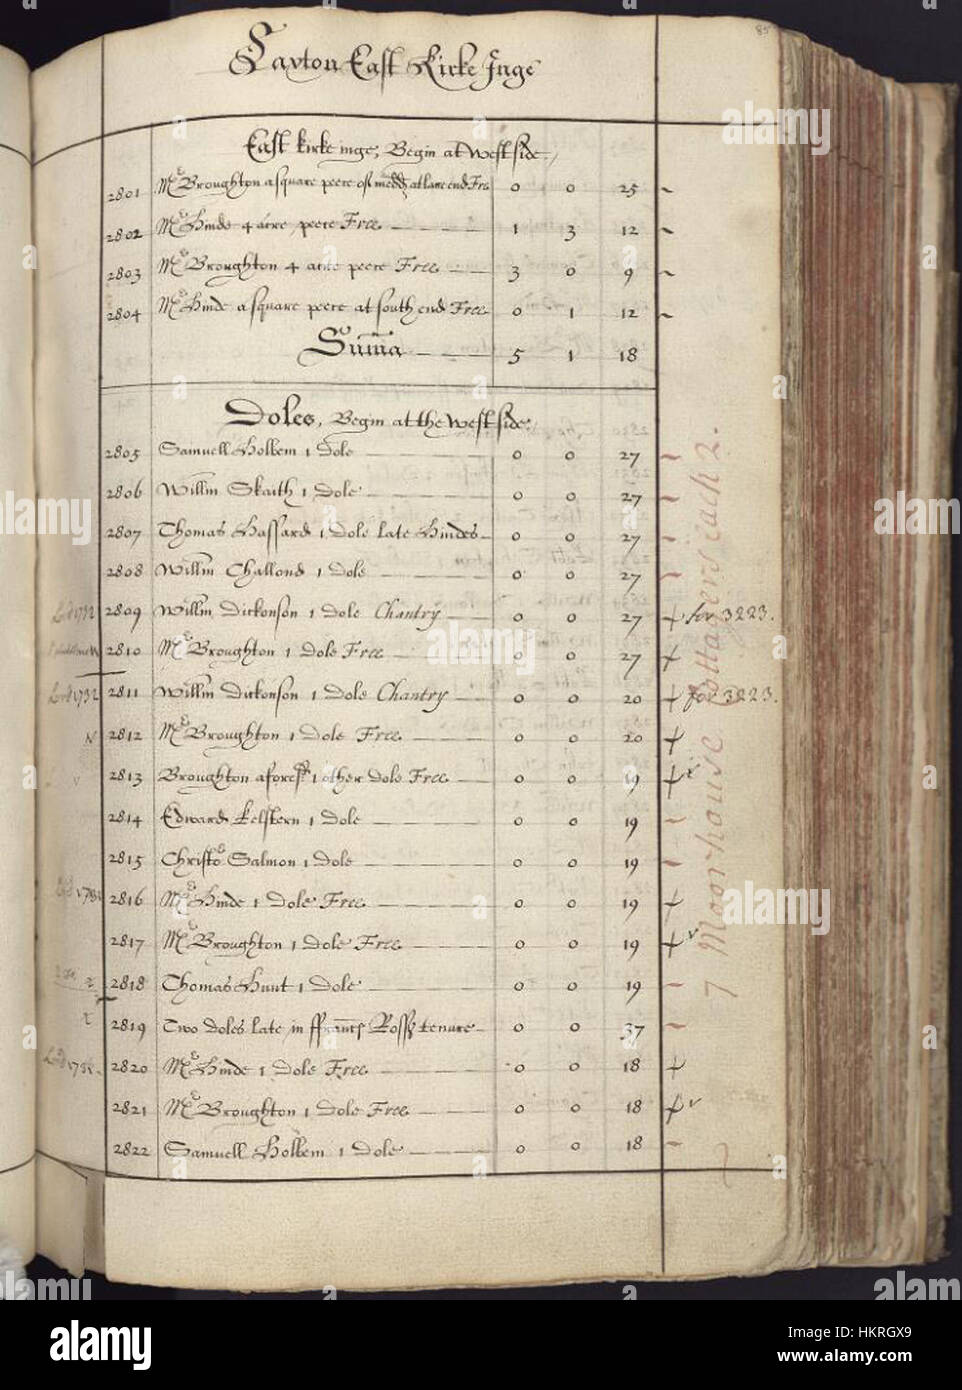 85
Laxton East Kirke Inge
East kirke inge, Begin at West side.
2801 Mr Broughton a square peece of meddow at lane end Free 0 0 25
2802 Mr Hinde 4 acre peece Free 1 3 12
2803 Mr Broughton 4 acre peece Free 3 0 9
2804 Mr Hinde a square peece at south end Free 0 1 12
Suma 5 1 18
Doles, Begin at the West side.
2805 Samuell Holbem 1 dole 0 0 27
2806 Willm Skaith 1 dole 0 0 27
2807 Thomas Hassard 1 dole late Hindes 0 0 27
2808 Willm Challond 1 dole 0 0 27
Lord 1732 2809 Willm Dickonson 1 dole Chantry 0 0 27 for 3223.
2810 Mr Broughton 1 dole Free 0 0 27
Lord 1732 2811 Willm Dickonson 1 dole Chantry 0 0 20 for 3223.
N 2812 Mr Broughton 1 dole Free 0 0 20
2813 Broughton aforesd 1 other dole Free 0 0 19
2814 Edward Kelstern 1 dole 0 0 19
2815 Christo Salmon 1 dole 0 0 19
2816 Mr Hinde 1 dole Free 0 0 19
2817 Mr Broughton 1 dole Free 0 0 19
2818 Thomas Hunt 1 dole 0 0 19
2819 Two doles late in ffrancs Rosse tenure 0 0 37
2820 Mr Hinde 1 dole Free 0 0 18
2821 Mr Broughton 1 dole Free 0 0 18
2822 Samuell Holbem 1 dole 0 0 18
7 Moorhouse Cottagers each 2.
alamy
Image ID: HKRGX9
www.alamy.com